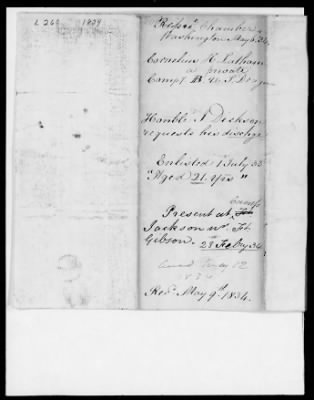 L 260 1834
Repres. Chamber
Washington May 6. 34.
Cornelius H. Latham
a private
Compy B. U. S. Dragns
Honble J. Dickson
requests his discharge
Enlisted 1 July 33
"Aged 21 yrs "
Present at Camp
Jackson nr. Ft.
Gibson. 28 Feby 34
May 12
1834
Recd. May 9th. 1834.